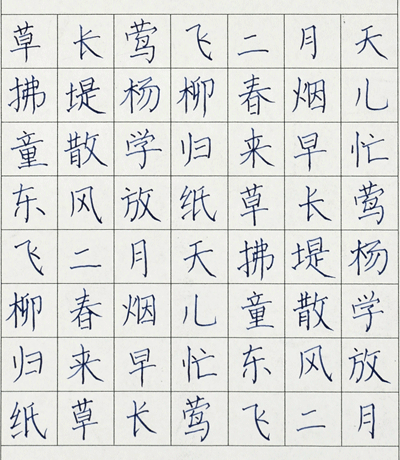 草长莺飞二月天
拂堤杨柳春烟儿
童散学归来早忙
东风放纸草长莺
飞二月天拂堤杨
柳春烟儿童散学
归来早忙东风放
纸草长莺飞二月